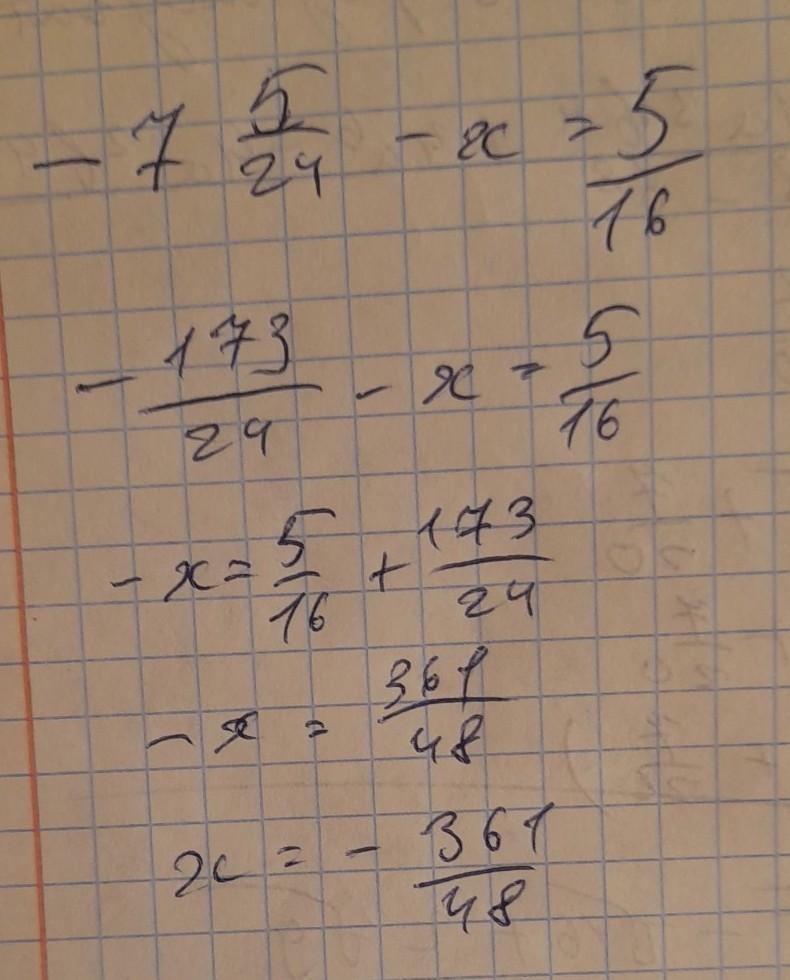 - 7 5/24 - x = 5/16
- 173/24 - x = 5/16
- x = 5/16 + 173/24
- x = 361/48
x = - 361/48